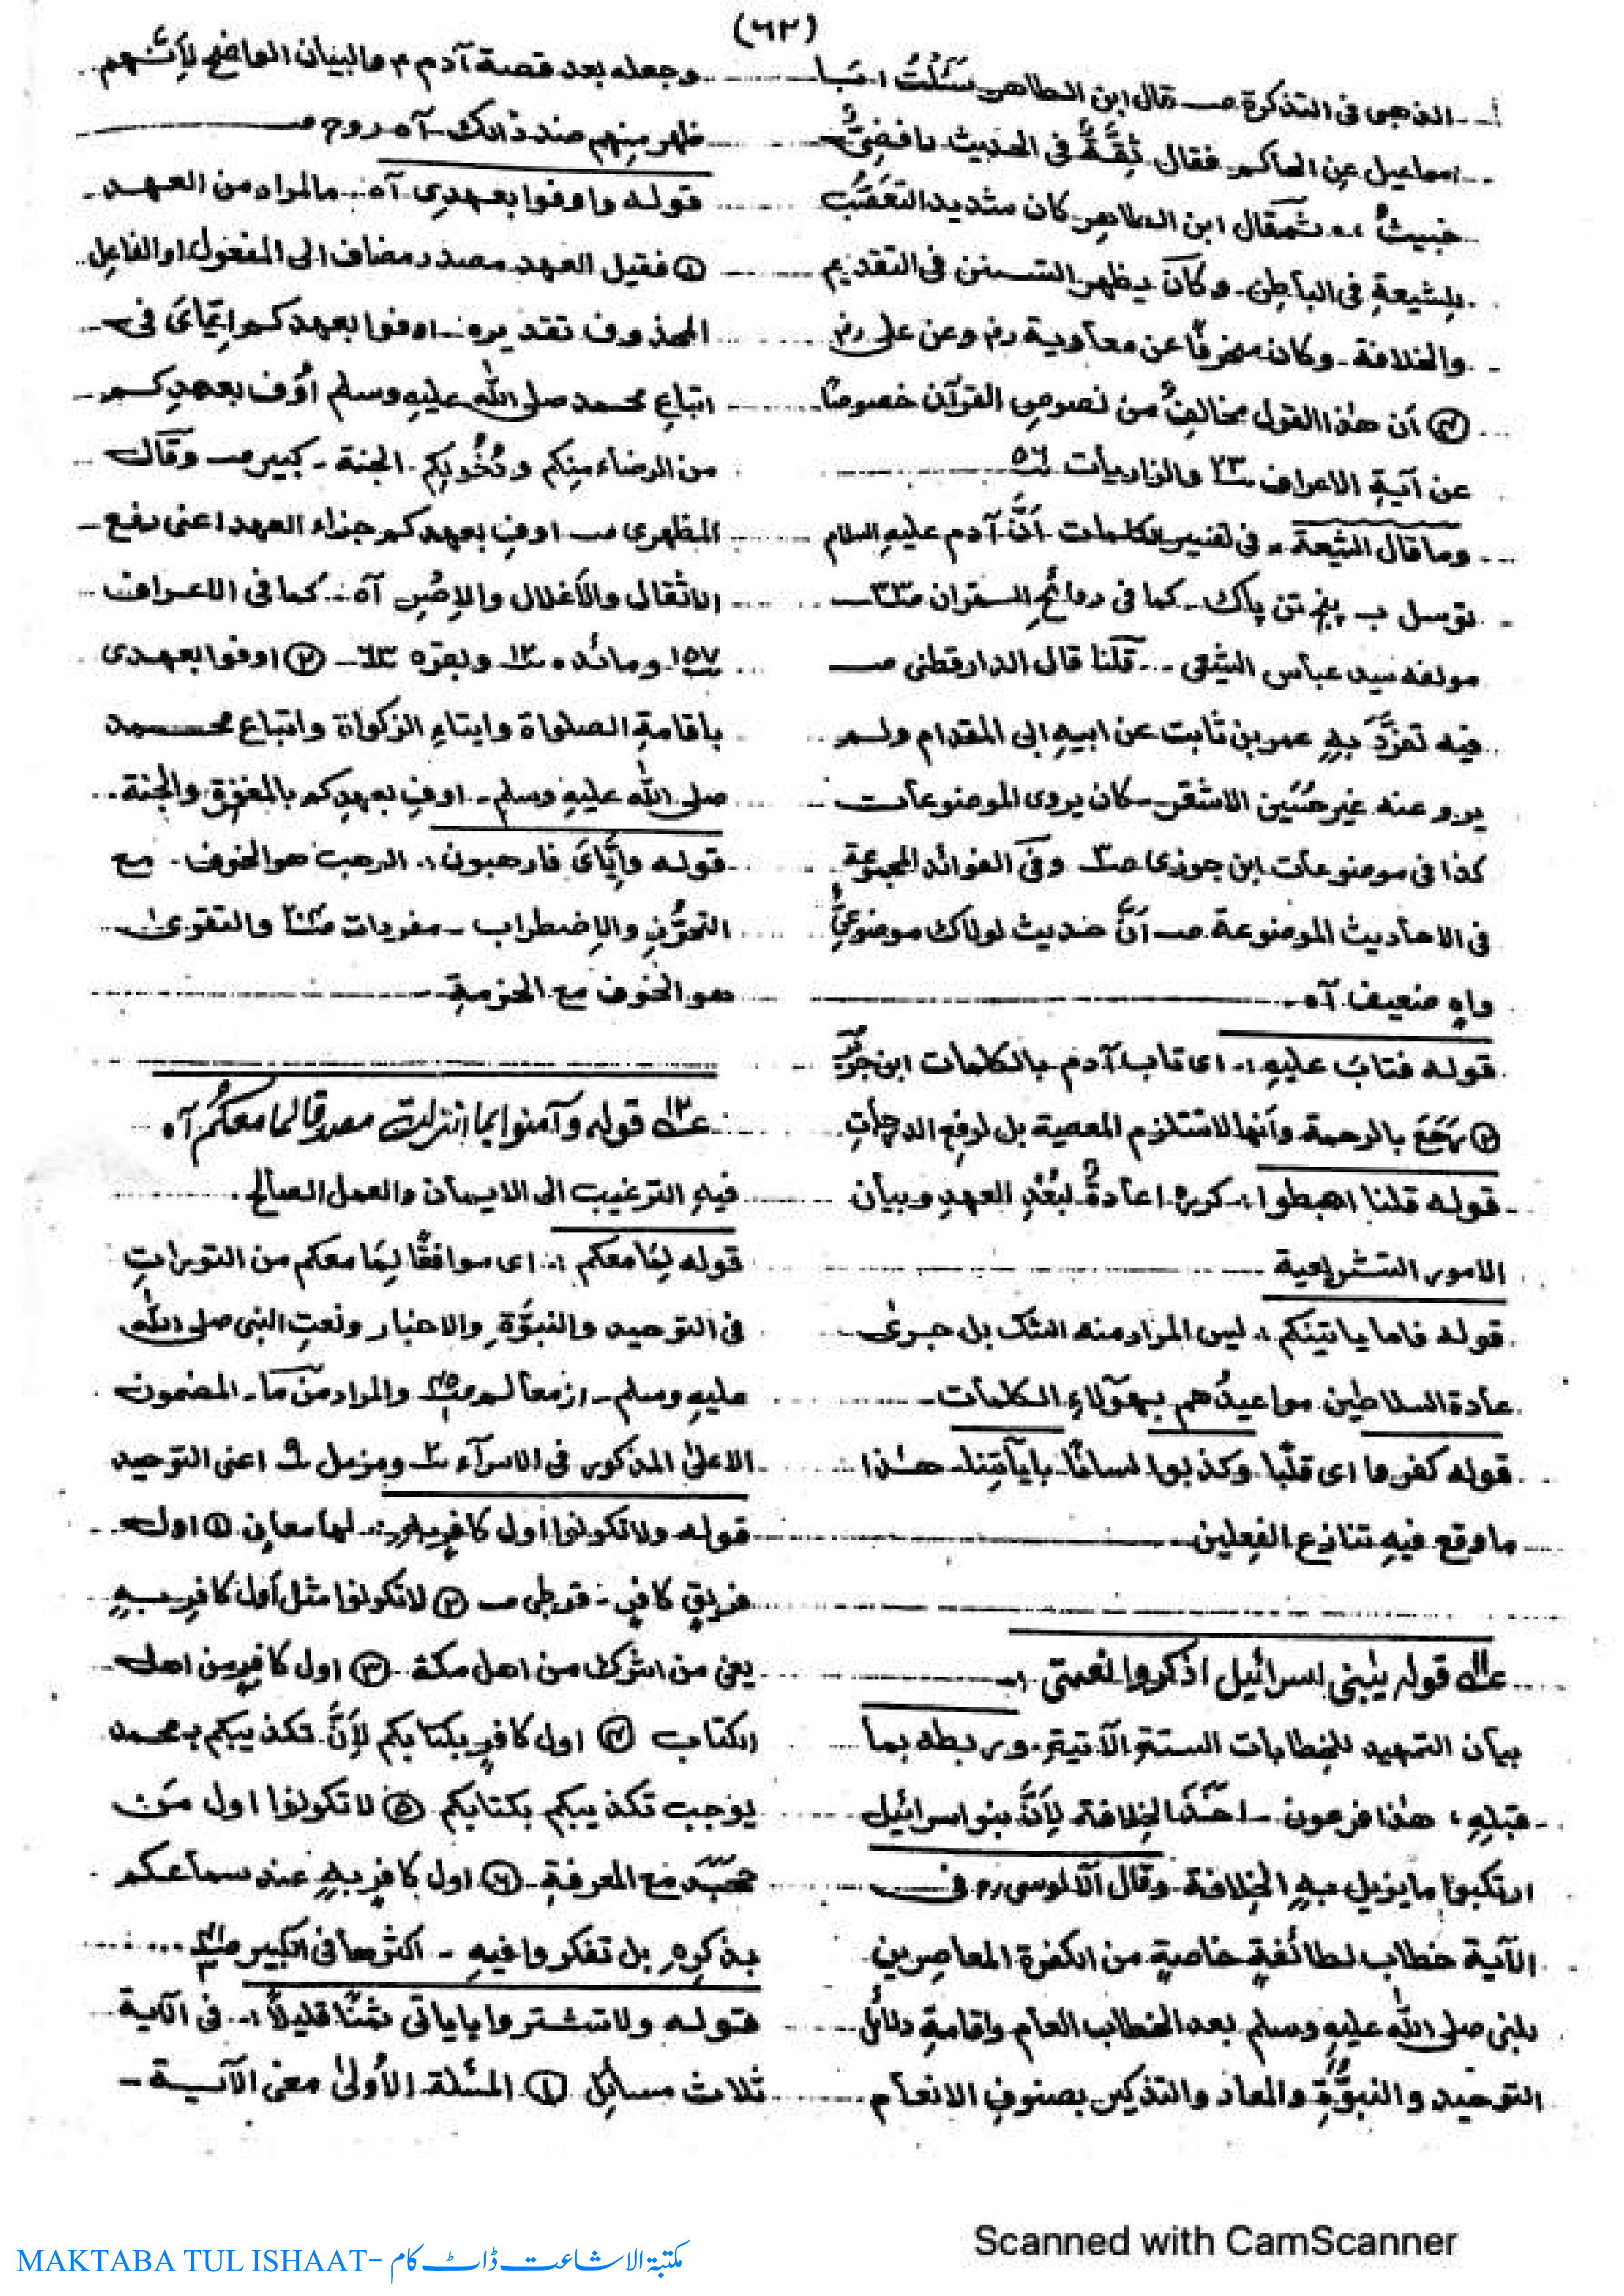 (٦٢)
الذهبى فى التذكرة صـ قال ابن الطاهر سَئَلْتُ ابَا
اسماعيل عن الحاكم فقال ثِقَةٌ فى الحديث رافضِىٌّ
خبيثٌ .. ثمّ قال ابن الطاهر كان شديد التعَصُّب
بلشيعةِ فى الباطِن وكانَ يظهر التسنن فى التقديم
والخلافة وكان منحرفًا عن معاوية رض وعن على رض
④ أن هٰذا القول مخالفٌ من نصوصِ القرآن خصوصًا
عن آيةِ الاعراف ٢٣ والزاريات ٥٦
وما قال الشيعة فى تفسير الكلمات أنَّ آدم عليهِ السلام
توسل ب پنج تن پاك كما فى روائح القران صـ٣٣
مولفه سيد عباس الشيعى .. قلنا قال الدارقطنى صـ
فيه تفرَّدَ بهٖ عمر بن ثابت عن ابيهِ ابى المقدام ولم
يرو عنه غير حُسَين الاشقر كان يروى الموضوعات
كذا فى موضوعات ابن جوزى صـ٣ وفى الفوائد المجموعة
فى الاحاديث الموضوعة صـ أنَّ حديث لولاك موضوعٌ
واهٍ ضعيف آه
قوله فتابَ عليهِ :. اى تاب آدم بالكلمات ابن جرير
② رَجَعَ بالرحمة وأنها لا تستلزم المعصية بل لرفعِ الدرجاتِ
قوله قلنا اهبطوا :. كرره اعادةً لبُعْدِ العهدِ وبيان
الامور التشريعية
قوله فاما ياتينكم :. ليس المراد منه الشك بل جرىٰ
عادة السلاطين مواعيدُهم بهؤلاءِ الكلمات
قوله كفروا اى قلبًا وكذبوا لسانًا بايآتِنا هٰذا
ما وقع فيهِ تنازع الفِعلين
١١ قوله يٰبنى اسرائيل اذكروا نعمتى :.
بيان التمهيد للخطابات الستة الآتية وربطه بما
قبلِهٖ ، هٰذا فرعون الخِلافة لِأَنَّ بنو اسرائيل
ارتكبوا ما يزيل بهِ الخِلافة وقال الآلوسى رح فى
الآية خطاب لطائفةٍ خاصةٍ من الكفرة المعاصِرين
بلنبى صلى الله عليهِ وسلم بعد الخطاب العام واقامةِ دلائل
التوحيد والنبوّةِ والمعاد والتذكير بصنوفِ الانعام
وجعله بعد قصة آدم م والبيان الواضح لِأَنهم
ظهر مِنهم ضد ذالك آه روح صـ
قوله واوفوا بعهدِى آه :. مالمراد من العهد
① فقيل العهد مصدر مضاف الى المفعول او الفاعِل
المحذوف تقديره اوفوا بعهدكم اِيَّاىَ فى
اتباعِ محمد صلى الله عليهِ وسلم أوْف بعهدِكم
من الرضاء مِنكم و الجنة - كبير صـ وقال
المظهرى صـ اوفِ بعهدكم جزاء العهد اعنى رفع
الاثقال والأغلال والإصْرِ آه :. كما فى الاعراف
١٥٧ ومائده ١٢ وبقره ٦٣ ② اوفوا بعهدى
باقامةِ الصلواة وايتاءِ الزكواة واتباع محمد
صلى الله عليهِ وسلم - اوفِ بعهدِكم بالمغفرة والجنة
قوله وإيَّاىَ فارهبون :. الرهب هو الخوف مع
التحزُّنِ والاِضطراب - مفردات صـ والتقوىٰ
هو الخوف مع الحزمةِ
١٢ قوله وآمنوا بما انزلت مصدقا لما معكم آه
فيهِ الترغيب الى الايمان والعمل الصالح
قوله لِمَا معكم :. اى موافقًا لِمَا معكم من التوراتِ
فى التوحيد والنبوَّةِ والاخبار ونعتِ النبى صلى الله
عليهِ وسلم - از معالم صـ والمراد من مَا - المضمون
الاعلىٰ المذكور فى الاسرآء ٢ ومزمل ٩ اعنى التوحيد
قوله ولا تكونوا اول كافرٍ بهٖ :. لها معانٍ ① اول
فريقٍ كافرٍ - قرطبى صـ ② لا تكونوا مثل أول كافرٍ بهٖ
يعنى من اشرك من اهل مكة ③ اول كافرٍ من اهل
الكتاب ④ اول كافرٍ بكتابكم لِأَنَّ تكذيبكم بمحمد
يوجب تكذيبكم بكتابكم ⑤ لا تكونوا اول مَن
جحَدَ مع المعرفةِ ⑥ اول كافرٍ بهٖ عند سماعكم
بذكرِهٖ بل تفكروا فيهِ - اكثرها فى الكبير صـ
قوله ولا تشتروا باياتى ثمنًا قليلًا :. فى الآية
ثلاث مسائل ① المسئلة الأولىٰ معنى الآية
Scanned with CamScanner
MAKTABA TUL ISHAAT- مكتبة الاشاعت ڈاٹ کام